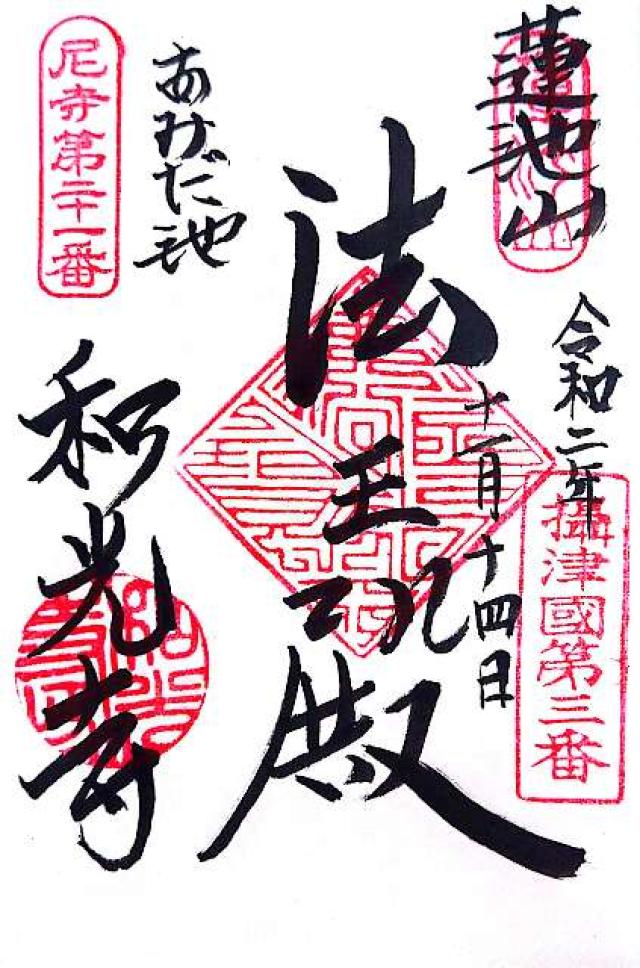 蓮池山
令和二年
十一月十四日
攝津國第三番
法王殿
あみだ池
和光寺
尼寺第二十一番